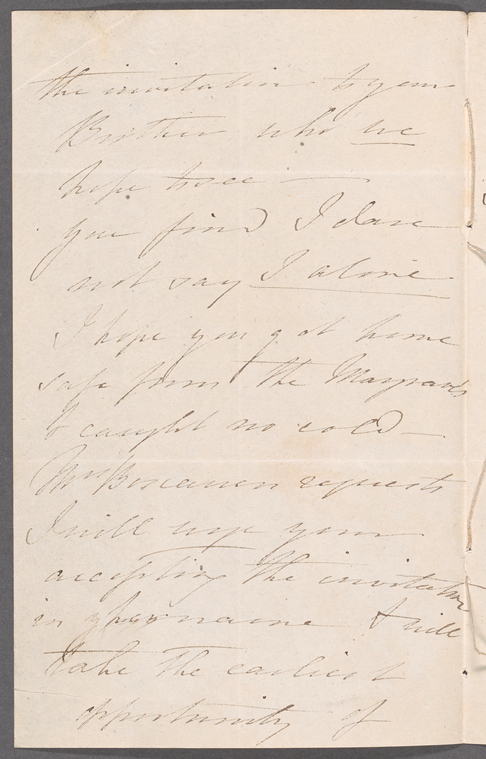 the invitation to your
Brother who we
hope to see —
you find I dare
not say I alone
I hope you got home
safe from the
& caught no cold —
Mrs Boscawen requests
I will urge your
accepting the invitation
in her name & will
take the earliest
opportunity of